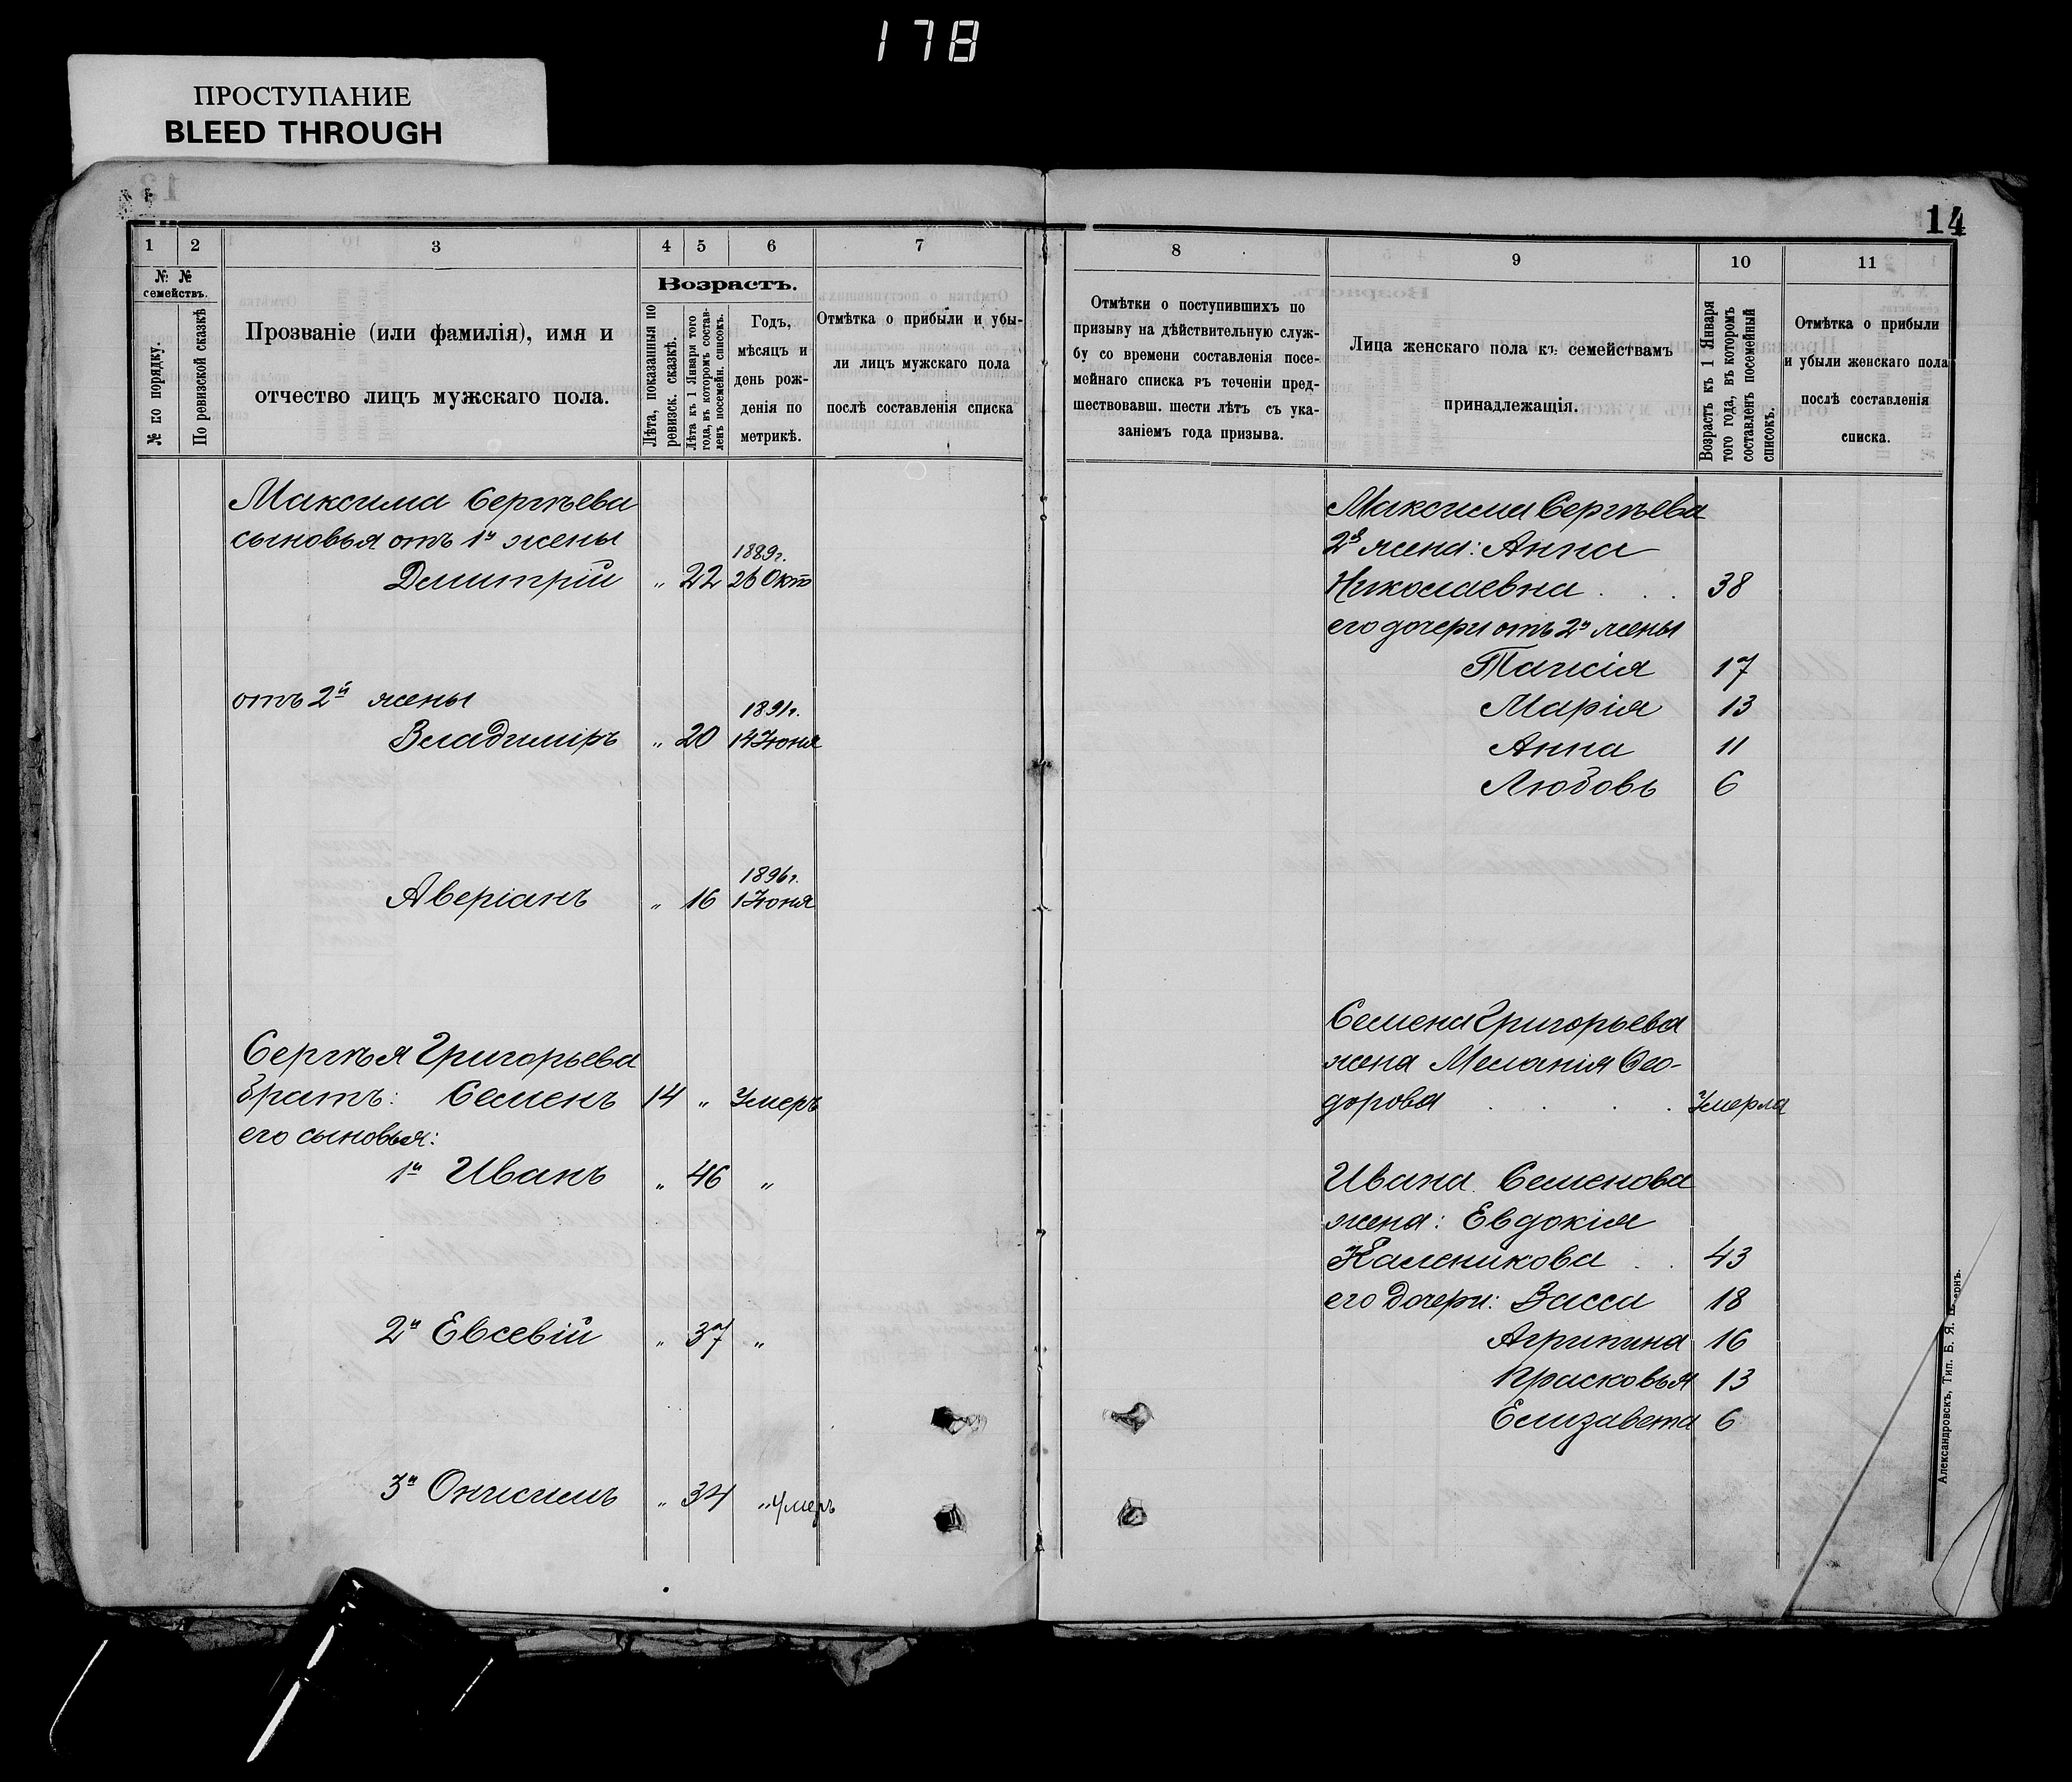 178
ПРОСТУПАНИЕ
BLEED THROUGH
14
1 2 3 4 5 6 7
№ № семействъ.
№ по порядку.
По ревизской сказкѣ
Прозваніе (или фамилія), имя и
отчество лицъ мужскаго пола.
Возрастъ.
Лѣта, показанныя по
ревизск. сказкѣ.
Лѣта къ 1 Января того
года, въ которомъ состав-
ленъ посемейн. списокъ.
Годъ,
мѣсяцъ и
день рож-
денія по
метрикѣ.
Отмѣтка о прибыли и убы-
ли лицъ мужскаго пола
послѣ составленія списка
Максима Сергѣева
сыновья отъ 1й жены
1889г.
Димитрій „ 22 26 Окт
отъ 2й жены
1891г.
Владиміръ „ 20 14 Іюня
1896г.
Аверіанъ „ 16 1 Іюня
Сергѣя Григорьева
братъ: Семенъ 14 „ Умеръ
его сыновья:
1й Иванъ „ 46 „
2й Евсевій „ 37 „
3й Онисимъ „ 34 „ умеръ
8 9 10 11
Отмѣтки о поступившихъ по
призыву на дѣйствительную служ-
бу со времени составленія посе-
мейнаго списка въ теченіи пред-
шествовавш. шести лѣтъ съ ука-
заніемъ года призыва.
Лица женскаго пола къ семействамъ
принадлежащія.
Возрастъ къ 1 Января
того года, въ которомъ
составленъ посемейный
списокъ.
Отмѣтка о прибыли
и убыли женскаго пола
послѣ составленія
списка.
Максима Сергѣева
2я жена: Анна
Николаевна . . . 38
его дочери отъ 2й жены
Таисія 17
Марія 13
Анна 11
Любовь 6
Семена Григорьева
жена Меланія Ѳео-
дорова . . . Умерла
Ивана Семенова
жена: Евдокія
Каленикова . . 43
его дочери: Васса 18
Агрипина 16
Прасковья 13
Елизавета 6
Александровскъ, Тип. Б. Я.